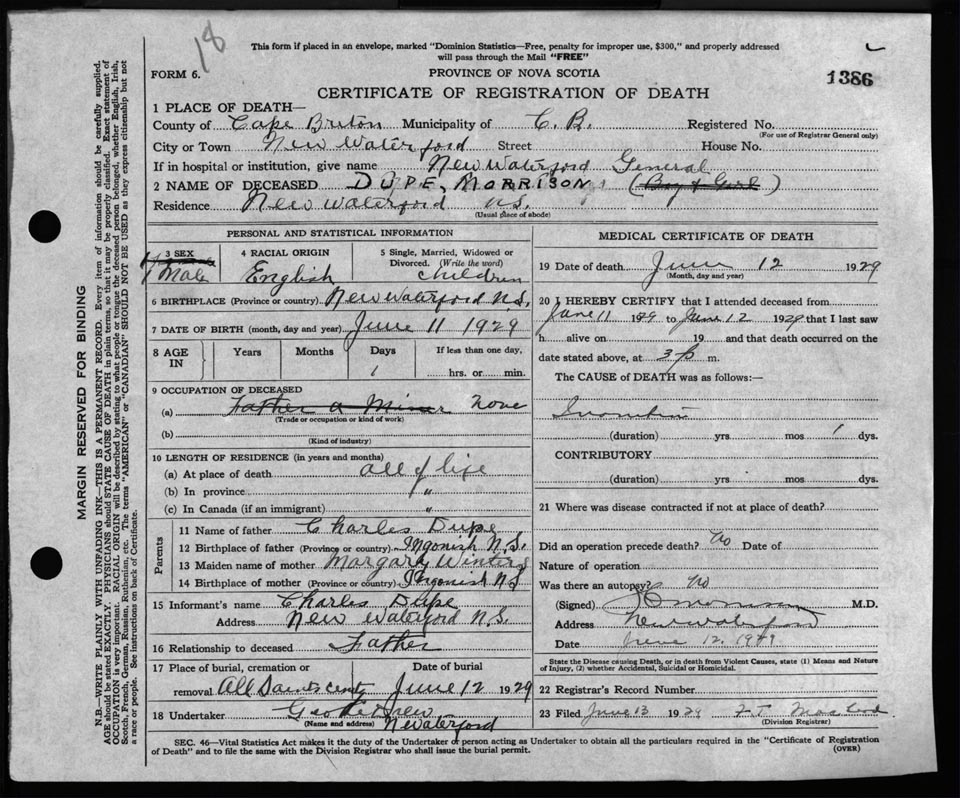 18
This form if placed in an envelope, marked "Dominion Statistics—Free, penalty for improper use, $300," and properly addressed
will pass through the Mail "FREE"
FORM 6.
PROVINCE OF NOVA SCOTIA
1386
CERTIFICATE OF REGISTRATION OF DEATH
1 PLACE OF DEATH—
County of Cape Breton Municipality of C. B. Registered No.
(For use of Registrar General only)
City or Town New Waterford Street House No.
If in hospital or institution, give name New Waterford General
2 NAME OF DECEASED DUPE, MORRISON (Boy & Girl)
Residence New Waterford N.S.
(Usual place of abode)
PERSONAL AND STATISTICAL INFORMATION
3 SEX
Male
4 RACIAL ORIGIN
English
5 Single, Married, Widowed or
Divorced. (Write the word)
children
6 BIRTHPLACE (Province or country) New Waterford N.S.
7 DATE OF BIRTH (month, day and year) June 11 1929
8 AGE IN
Years Months Days If less than one day,
1 hrs. or min.
9 OCCUPATION OF DECEASED
(a) Father a Miner none
(Trade or occupation or kind of work)
(b)
(Kind of industry)
10 LENGTH OF RESIDENCE (in years and months)
(a) At place of death all of life
(b) In province "
(c) In Canada (if an immigrant) "
Parents
11 Name of father Charles Dupe
12 Birthplace of father (Province or country) Ingonish N.S.
13 Maiden name of mother Margary Winters
14 Birthplace of mother (Province or country) Ingonish N.S
15 Informant's name Charles Dupe
Address New Waterford N.S.
16 Relationship to deceased Father
17 Place of burial, cremation or Date of burial
removal All Saints June 12 1929
18 Undertaker
(Name and address)
N Waterford
MEDICAL CERTIFICATE OF DEATH
19 Date of death June 12 1929
(Month, day and year)
20 I HEREBY CERTIFY that I attended deceased from
June 11 1929 to June 12 1929 that I last saw
h alive on 19 and that death occurred on the
date stated above, at 3 p m.
The CAUSE of DEATH was as follows:—
(duration) yrs mos 1 dys.
CONTRIBUTORY
(duration) yrs mos dys.
21 Where was disease contracted if not at place of death?
Did an operation precede death? No Date of
Nature of operation
Was there an autopsy? No
(Signed) M.D.
Address New Waterford
Date June 12. 1929
State the Disease causing Death, or in death from Violent Causes, state (1) Means and Nature
of Injury, (2) whether Accidental, Suicidal or Homicidal.
22 Registrar's Record Number
23 Filed June 13 1929
(Division Registrar)
SEC. 46—Vital Statistics Act makes it the duty of the Undertaker or person acting as Undertaker to obtain all the particulars required in the "Certificate of Registration
of Death" and to file the same with the Division Registrar who shall issue the burial permit.
(OVER)
MARGIN RESERVED FOR BINDING
N.B.—WRITE PLAINLY WITH UNFADING INK—THIS IS A PERMANENT RECORD. Every item of information should be carefully supplied.
AGE should be stated EXACTLY. PHYSICIANS should STATE CAUSE OF DEATH in plain terms, so that it may be properly classified. Exact statement of
OCCUPATION is very important. RACIAL ORIGIN will be described by stating to what people or tongue the deceased person belonged, whether English, Irish,
Scotch, French, German, Russian, Ruthenian, etc. The terms "AMERICAN" or "CANADIAN" SHOULD NOT BE USED as they express citizenship but not
a race or people. See instructions on back of Certificate.